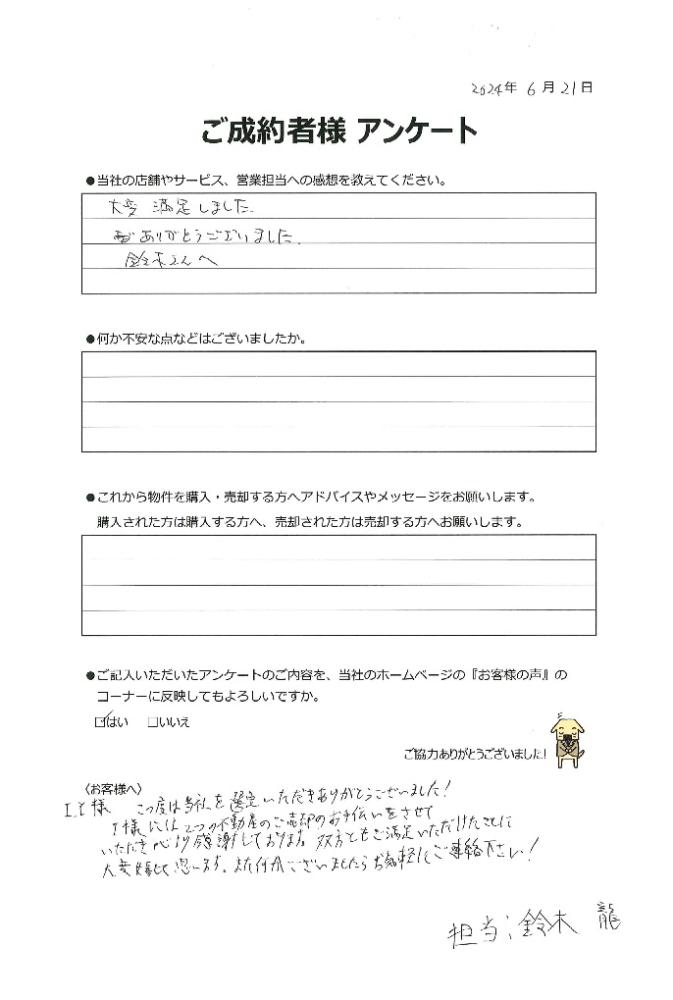 2024年 6月21日
ご成約者様 アンケート
●当社の店舗やサービス、営業担当への感想を教えてください。
大変 満足しました.
ありがとうございました.
鈴木さんへ
●何か不安な点などはございましたか。
●これから物件を購入・売却する方へアドバイスやメッセージをお願いします。
購入された方は購入する方へ、売却された方は売却する方へお願いします。
●ご記入いただいたアンケートのご内容を、当社のホームページの『お客様の声』の
コーナーに反映してもよろしいですか。
☑はい □いいえ
ご協力ありがとうございました!
〈お客様へ〉
I.Y様 この度は当社を選定いただきありがとうございました!
様には2つの不動産のご売却のお手伝いをさせて
いただき心より感謝しております。双方ともご満足いただけたことに
大変嬉しく思います。また何かございましたらお気軽にご連絡下さい!
担当:鈴木 龍